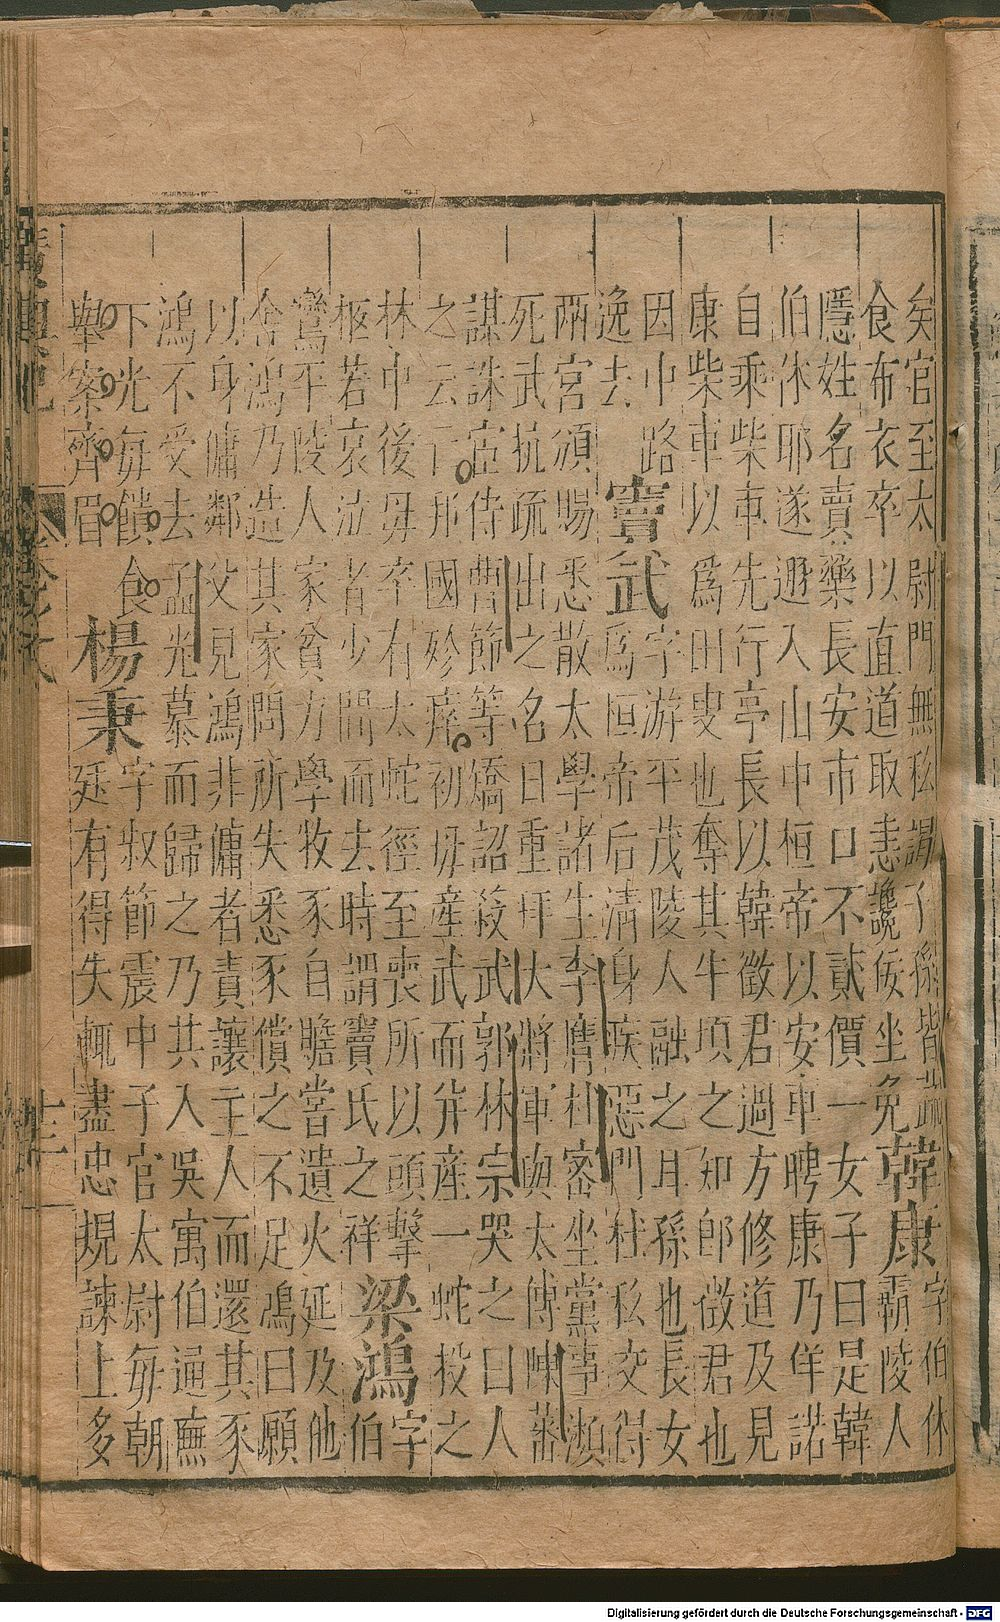 矣官至太尉門無私謁子孫皆蔬
食布衣卒以直道取恚讒佞坐免
韓康
字伯休
霸陵人
隱姓名賣藥長安市口不貳價一女子曰是韓
伯休耶遂遯入山中桓帝以安車聘康乃佯諾
自乘柴車先行亭長以韓徵君過方修道及見
康柴車以爲田叟也奪其牛項之知郎徵君也
因中路
逸去
竇武
字游平茂陵人融之耳孫也長女
爲恒帝后清身疾惡門杜私交得
兩宮頒賜悉散太學諸生李膺杜密坐黨事瀕
死武抗疏出之名日重拜大將軍與太傅陳蕃
謀誅宦侍曹節等矯詔殺武郭林宗哭之曰人
之云亡邦國殄瘁初毋產武而并產一蛇投之
林中後毋卒有太蛇徑至喪所以頭擊
柩若哀泣者少間而去時謂竇氏之祥
梁鴻
字
伯
鸞平陵人家貧力學牧豕自贍嘗遺火延及他
舍鴻乃造其家問所失悉豕償之不足鴻曰願
以身傭鄰父見鴻非傭者責讓主人而還其豕
鴻不受去孟光慕而歸之乃共入吳寓伯通廡
下光每饋食
舉案齊眉
楊秉
字叔節震中子官太尉每朝
廷有得失輒盡忠規諫上多
Digitalisierung gefördert durch die Deutsche Forschungsgemeinschaft - DFG